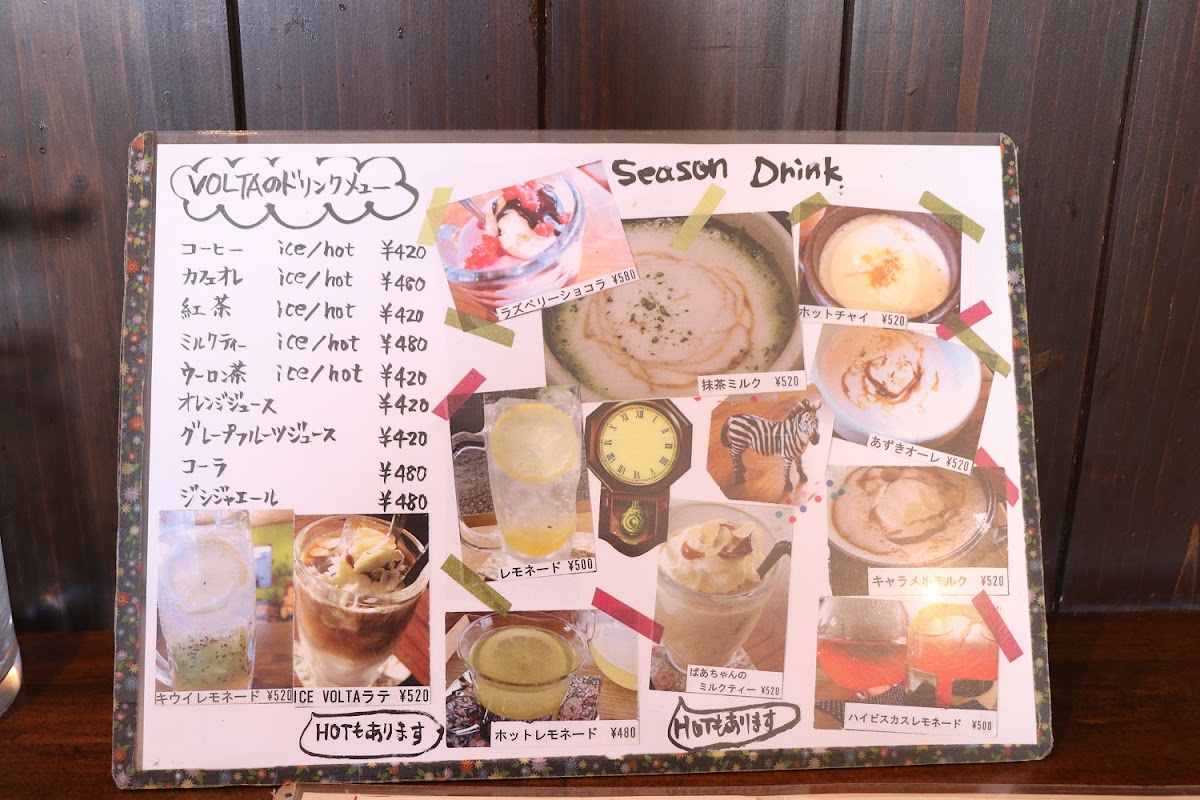 VOLTAのドリンクメュー
コーヒー ice/hot ¥420
カフェオレ ice/hot ¥480
紅茶 ice/hot ¥420
ミルクティー ice/hot ¥480
ウーロン茶 ice/hot ¥420
オレンジジュース ¥420
グレープフルーツジュース ¥420
コーラ ¥480
ジンジャエール ¥480
キウイレモネード ¥520
ICE VOLTAラテ ¥520
HOTもあります
Season Drink
ラズベリーショコラ ¥580
抹茶ミルク ¥520
ホットチャイ ¥520
あずきオーレ ¥520
レモネード ¥500
キャラメルミルク ¥520
ホットレモネード ¥480
ばあちゃんの
ミルクティー ¥520
HOTもあります
ハイビスカスレモネード ¥500